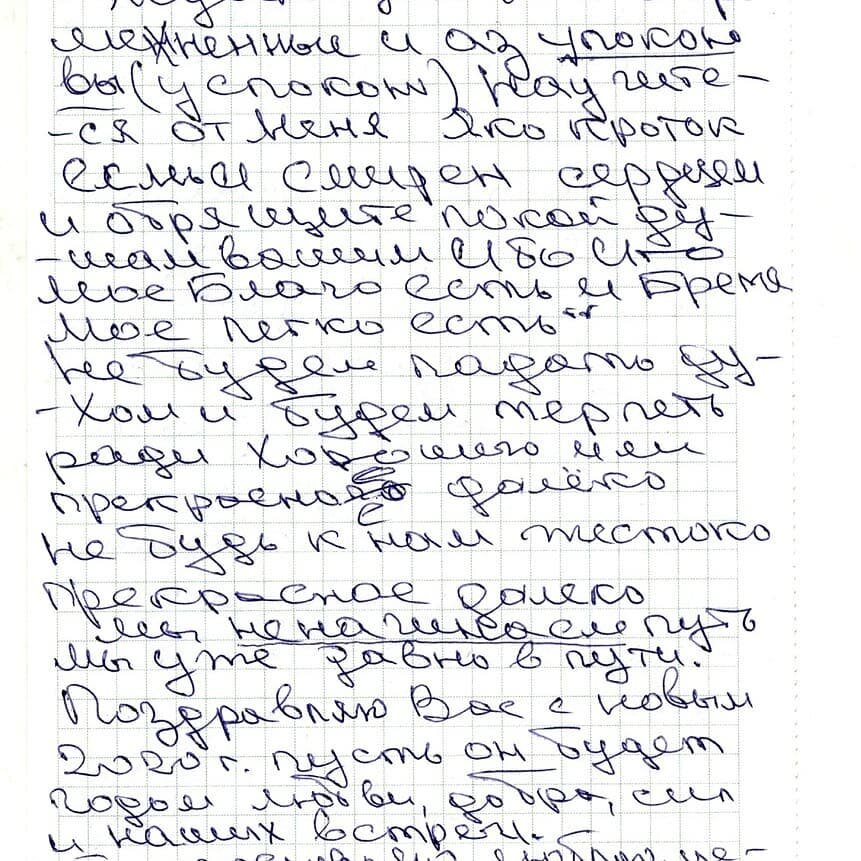 меженные и аз упокою
вы (успокою) Научите-
-ся от Меня Яко кроток
есмь и смирен сердцем
и обрящите покой ду-
-шам вашим Ибо Иго
мое Благо есть и Бремя
мое легко есть"
Не будем падать ду-
-хом и будем терпеть
ради хорошего или
прекрасное далёко
не будь к нам жестоко
Прекрасное далеко
мы не начинаем путь
мы уже давно в пути.
Поздравляю Вас с новым
2020 г. пусть он будет
годом любви, добра, сил
и наших встреч.